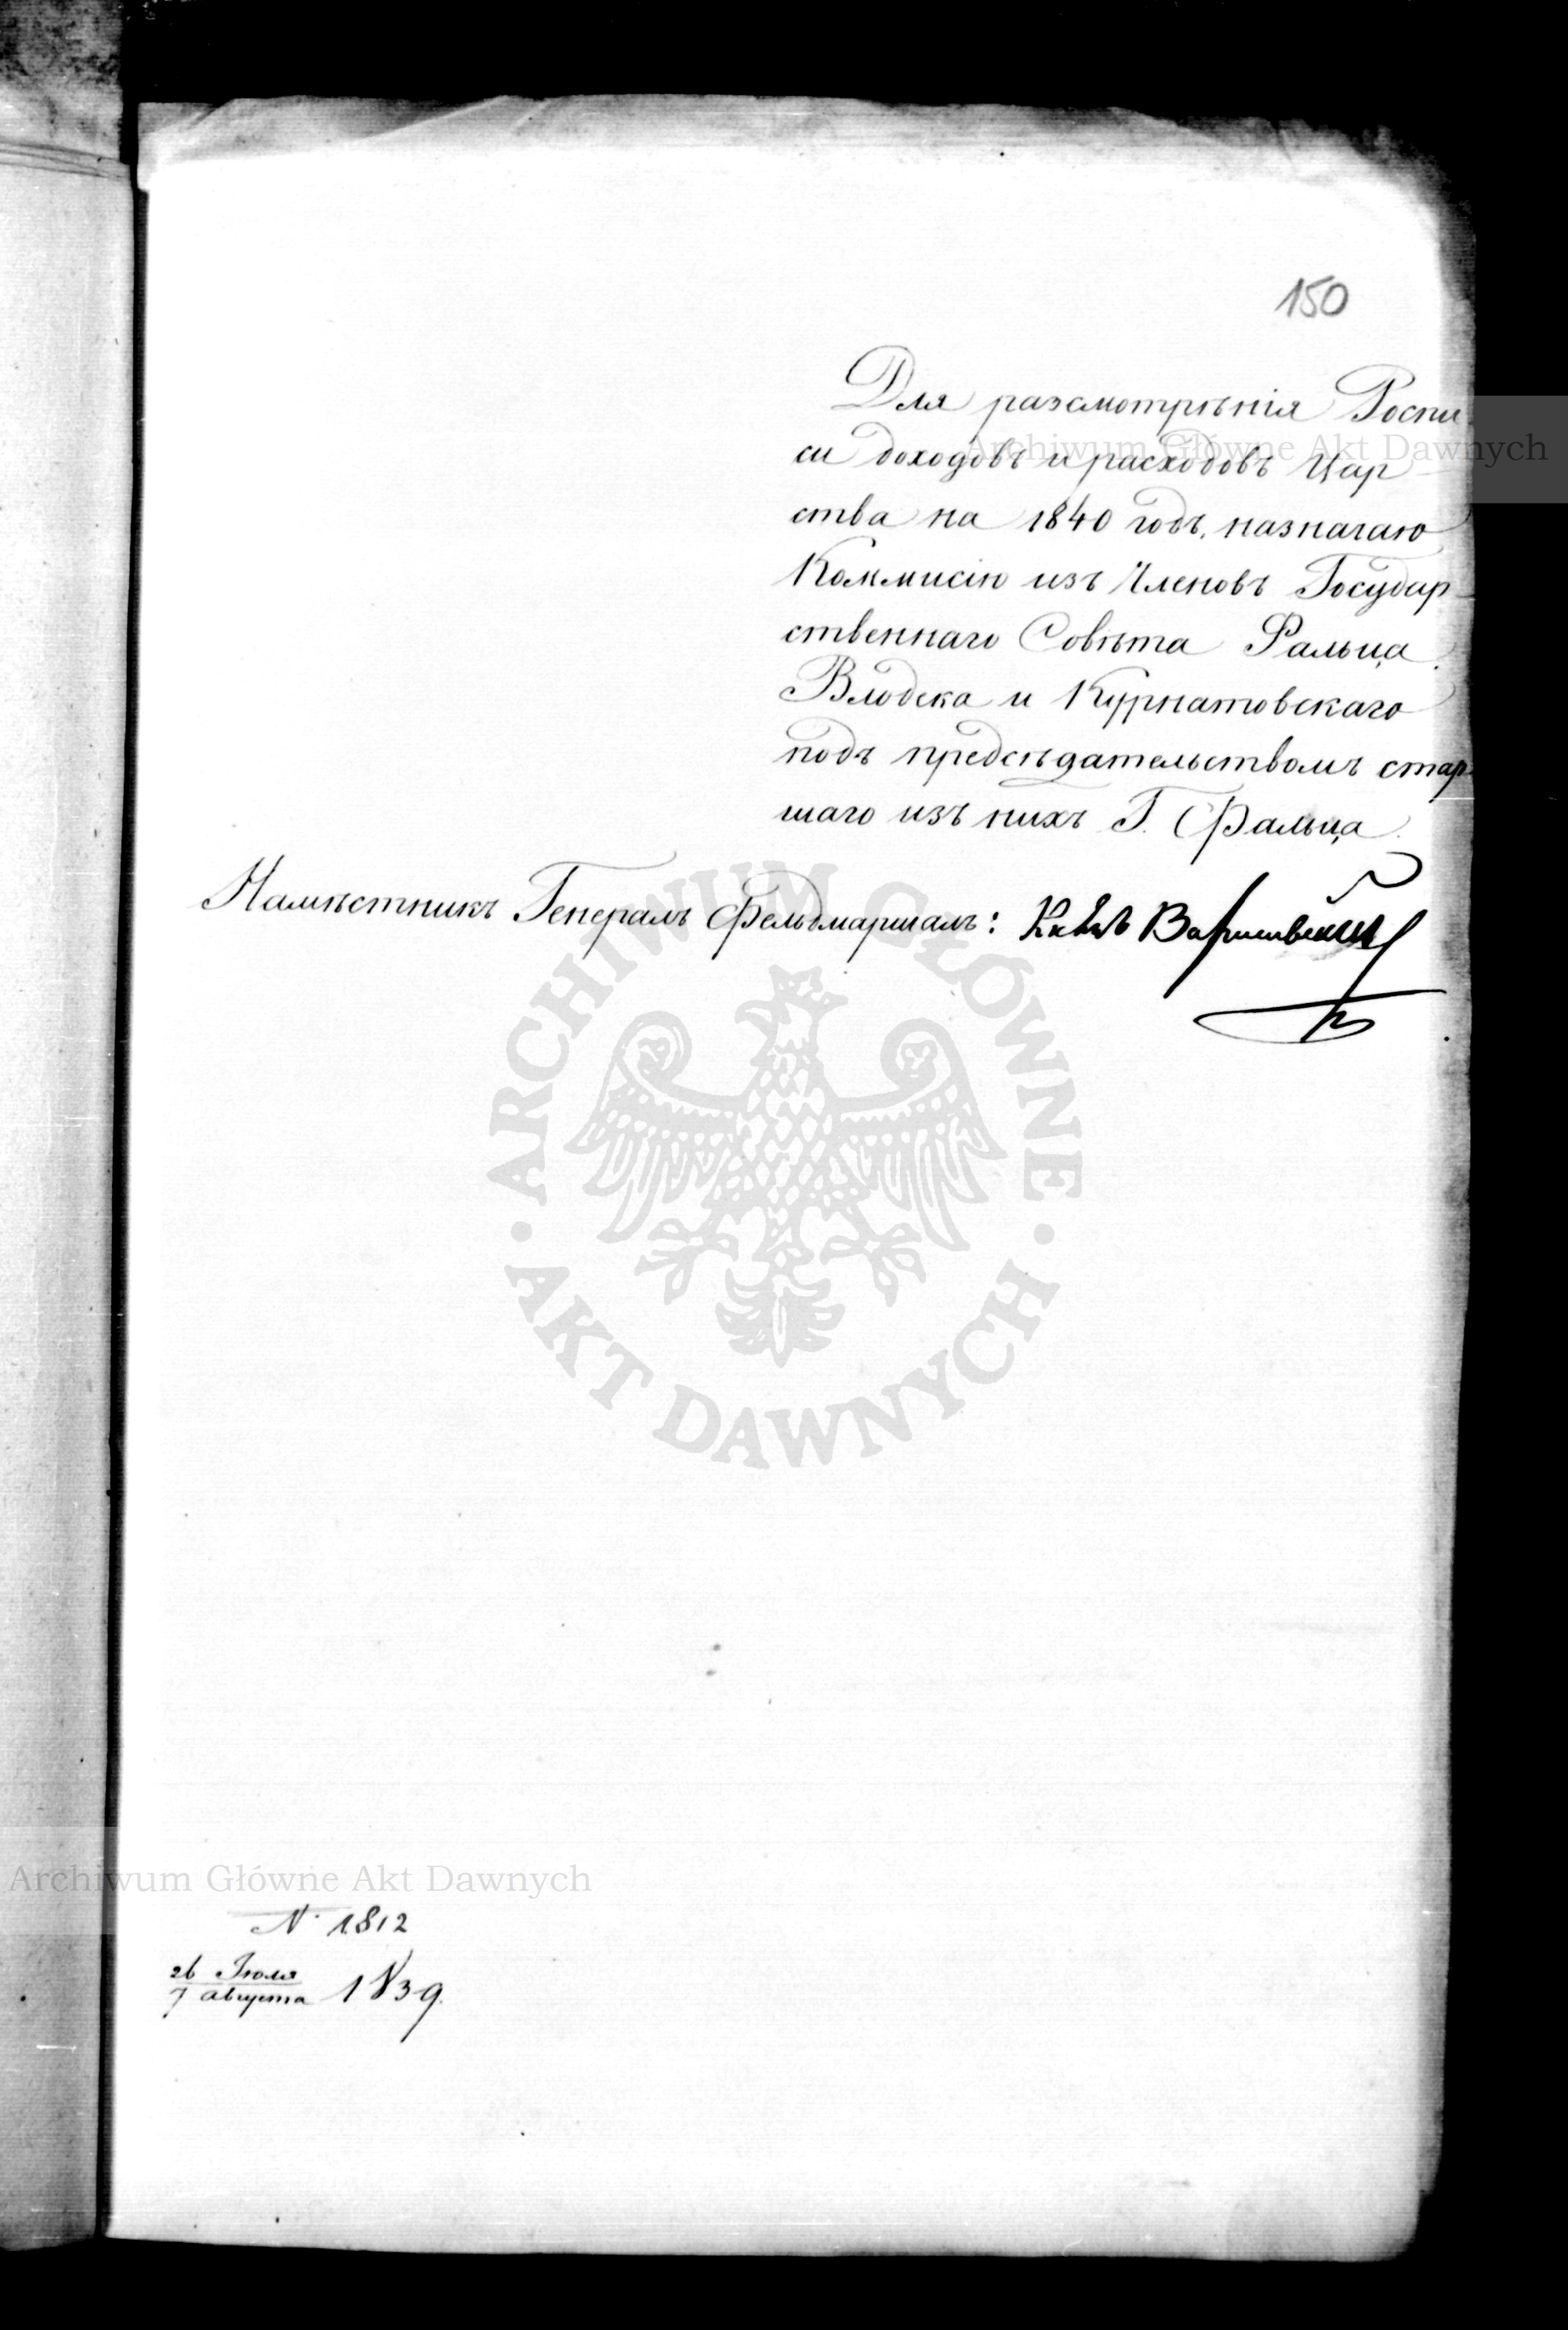 150
Для разсмотрѣнія Роспи
си доходовъ и расходовъ Цар
ства на 1840 годъ, назначаю
Коммисію изъ Членовъ Государ
ственнаго Совѣта Фальца
Влодека и Курнатовскаго
подъ предсѣдательствомъ стар
шаго изъ нихъ Г. Фальца.
Намѣстникъ Генералъ Фельдмаршалъ: Князь Варшавскій
N. 1812
26 Іюля
7 августа 1839.
Archiwum Główne Akt Dawnych
ARCHIWUM GŁÓWNE · AKT DAWNYCH ·
Archiwum Główne Akt Dawnych